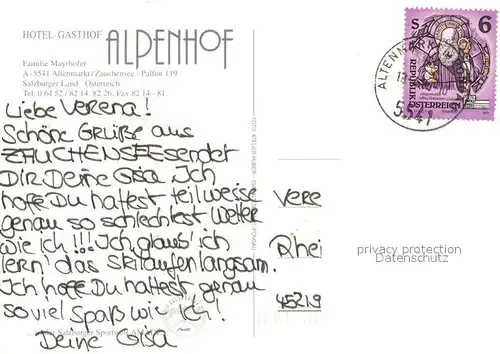 HOTEL-GASTHOF ALPENHOF
Familie Mayrhofer
A-5541 Altenmarkt/Zauchensee · Palfen 119
Salzburger Land · Österreich
Tel. 0 64 52 / 82 14, 82 26, Fax 82 14 - 81
Liebe Verena!
Schöne Grüße aus
ZAUCHENSEE sendet
Dir Deine Gisa. Ich
hoffe Du hattest teilweise
genau so schlechtest Wetter
wie ich!!! Ich glaub' ich
lern' das Skilaufen langsam.
Ich hoffe Du hattest genau
so viel Spaß wie ich!
Deine Gisa
Salzburger Sportwelt
S 6
REPUBLIK
ÖSTERREICH
ALTENMARKT
5541
Vere
Rhei
45219
privacy protection
Datenschutz